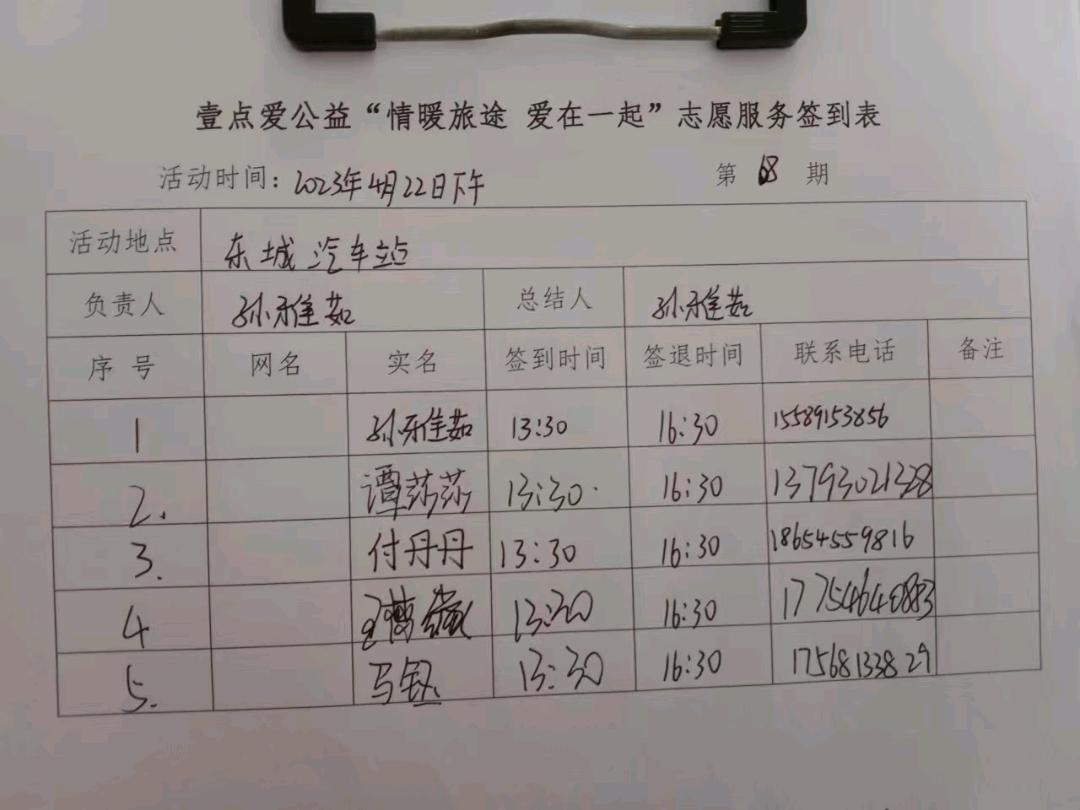 壹点爱公益“情暖旅途 爱在一起”志愿服务签到表
活动时间：2023年4月22日下午 第 68 期
活动地点 东城汽车站
负责人 孙雅茹 总结人 孙雅茹
序号 网名 实名 签到时间 签退时间 联系电话 备注
1 孙雅茹 13:30 16:30 15589153856
2. 谭莎莎 13:30 16:30 13793021328
3. 付丹丹 13:30 16:30 18654559816
4 13:30 16:30 17754640883
5. 马钰 13:30 16:30 17568133829